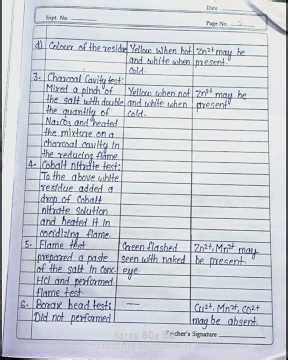 Date
Expt. No.
Page No. 5
d) Colour of the residue Yellow when hot Zn²⁺ may be
and white when present.
cold.
3- Charcoal Cavity test:
Mixed a pinch of Yellow when hot Zn²⁺ may be
the salt with double and white when present
the quantity of cold.
Na₂CO₃ and heated
the mixture on a
charcoal cavity in
the reducing flame
4- Cobalt nitrate test:
To the above white
residue added a
drop of cobalt
nitrate solution
and heated it in
oxidizing flame.
5- Flame test Green flashed Zn²⁺, Mn²⁺ may
prepared a paste seen with naked be present
of the salt in conc. eye
HCl and performed
flame test
6- Borax bead test: — Cu²⁺, Mn²⁺, CO²⁺
Did not performed may be absent.
Teacher's Signature